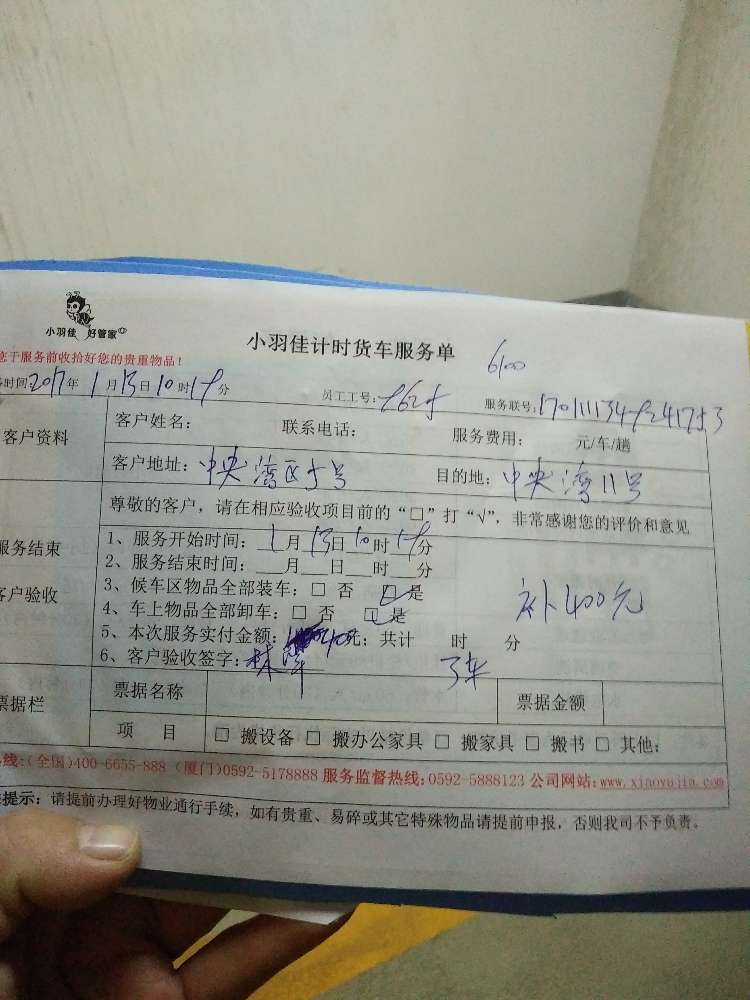 小羽佳 好管家
小羽佳计时货车服务单
6100
您于服务前收拾好您的贵重物品！
时间:2017年1月13日10时 分 员工工号: 服务联号:
客户资料 客户姓名: 联系电话: 服务费用: 元/车/趟
客户地址: 中央湾区5号 目的地: 中央湾11号
尊敬的客户，请在相应验收项目前的“□”打“√”，非常感谢您的评价和意见
服务结束
客户验收
1、服务开始时间: 1月13日10时 分
2、服务结束时间: 月 日 时 分
3、候车区物品全部装车: □ 否 □ 是
4、车上物品全部卸车: □ 否 □ 是
补400元
5、本次服务实付金额: 元; 共计 时 分
6、客户验收签字: 林 3车
票据栏 票据名称 票据金额
项 目 □ 搬设备 □ 搬办公家具 □ 搬家具 □ 搬书 □ 其他:
线:(全国)400-6655-888 (厦门)0592-5178888 服务监督热线:0592-5888123 公司网站:www.xiaoyujia.com
提示: 请提前办理好物业通行手续，如有贵重、易碎或其它特殊物品请提前申报，否则我司不予负责。